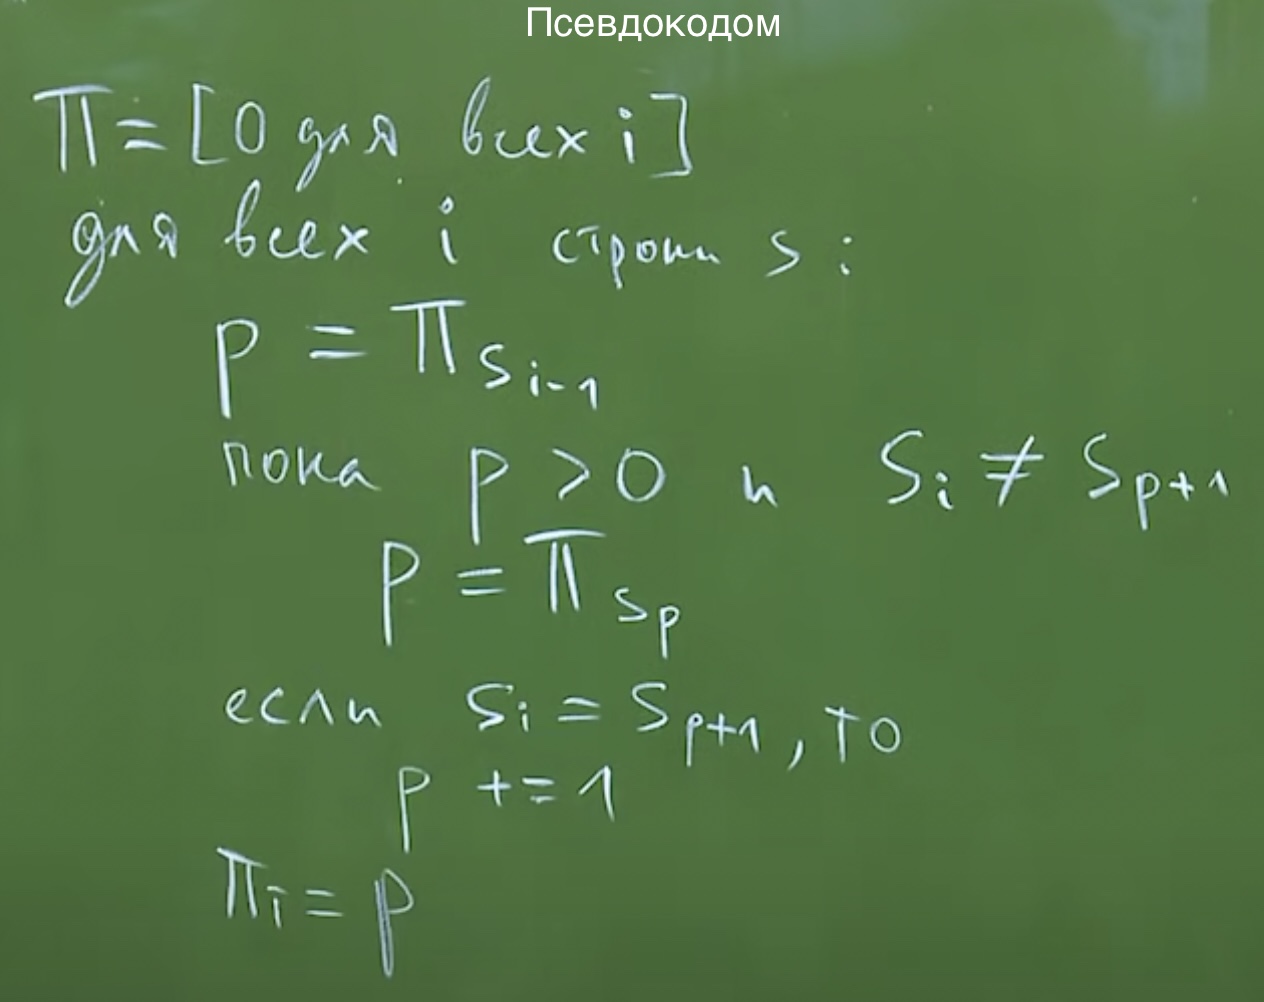 Псевдокодом
π = [0 для всех i]
для всех i строки s :
p = π s i-1
пока p > 0 и s i ≠ s p+1
p = π s p
если s i = s p+1 , то
p += 1
π i = p